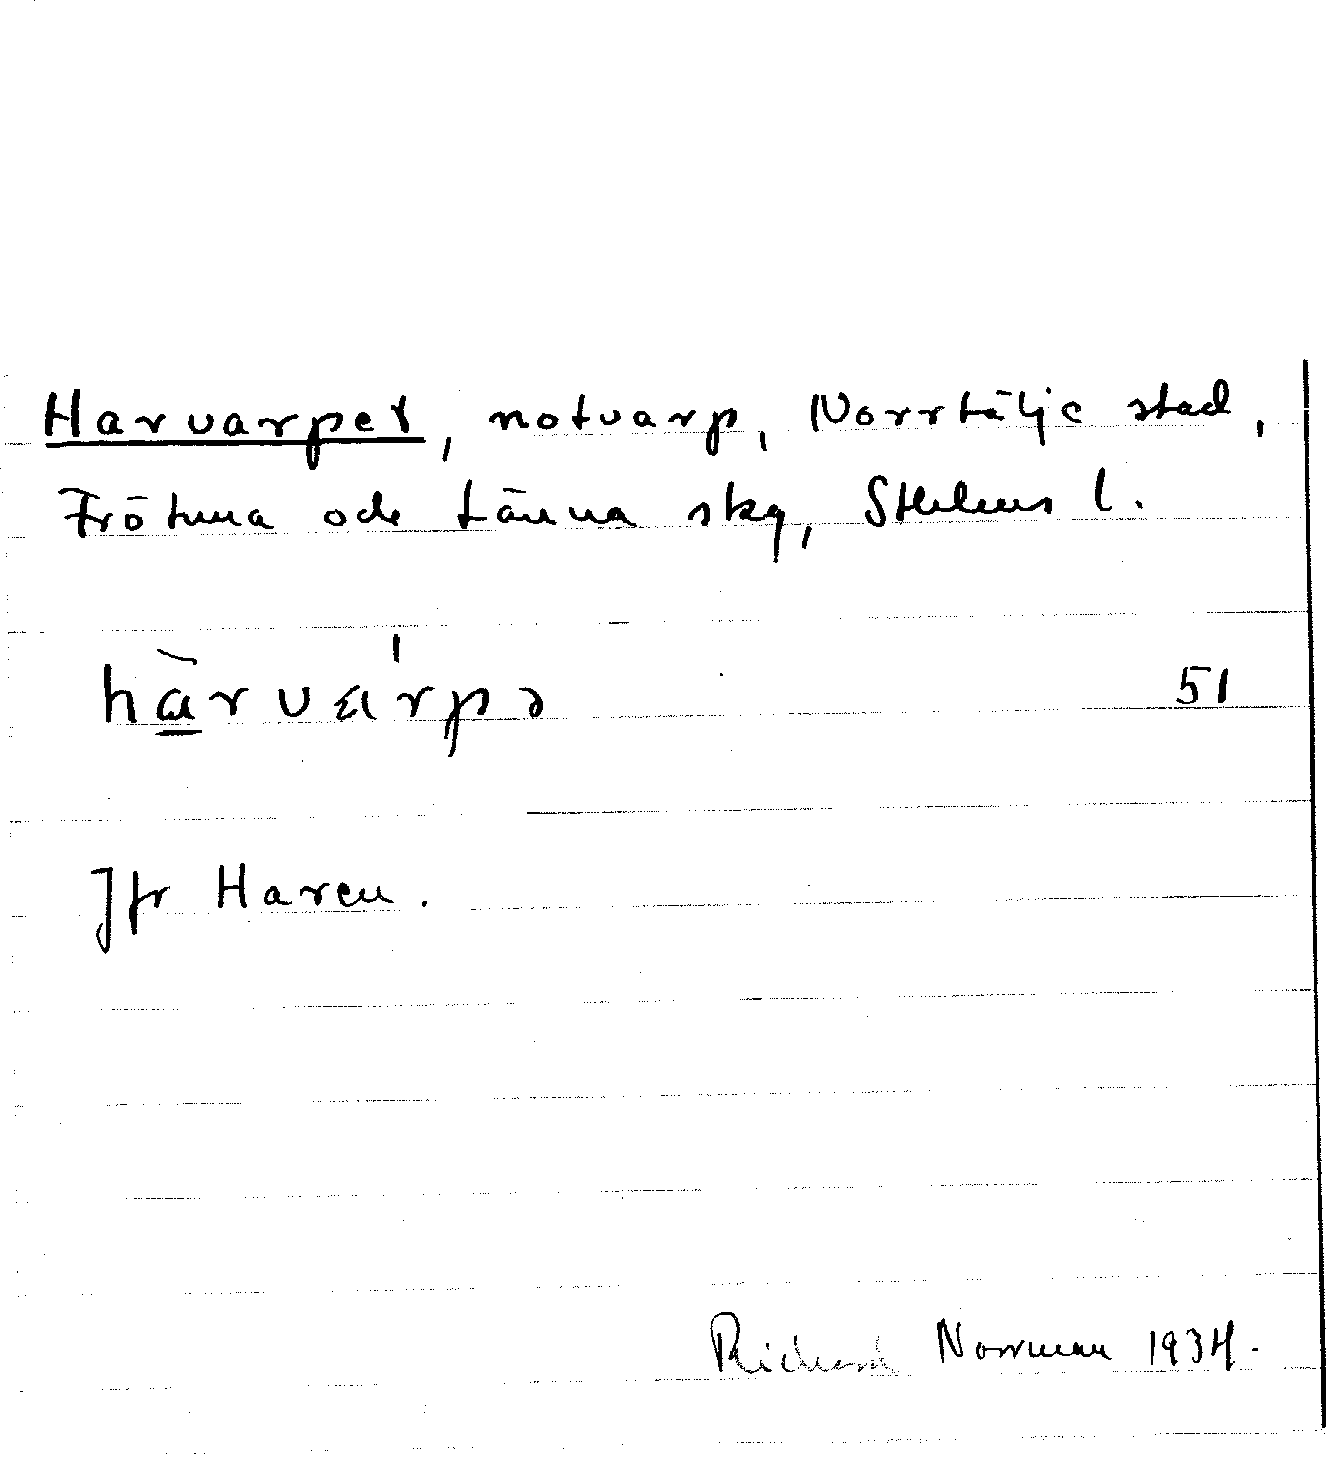 Harvarpet, notvarp, Norrtälje stad,
Frötuna och Länna skg, Sthlms l.
hàrvárpə 51
Jfr Haren.
Richard Norrman 1934.